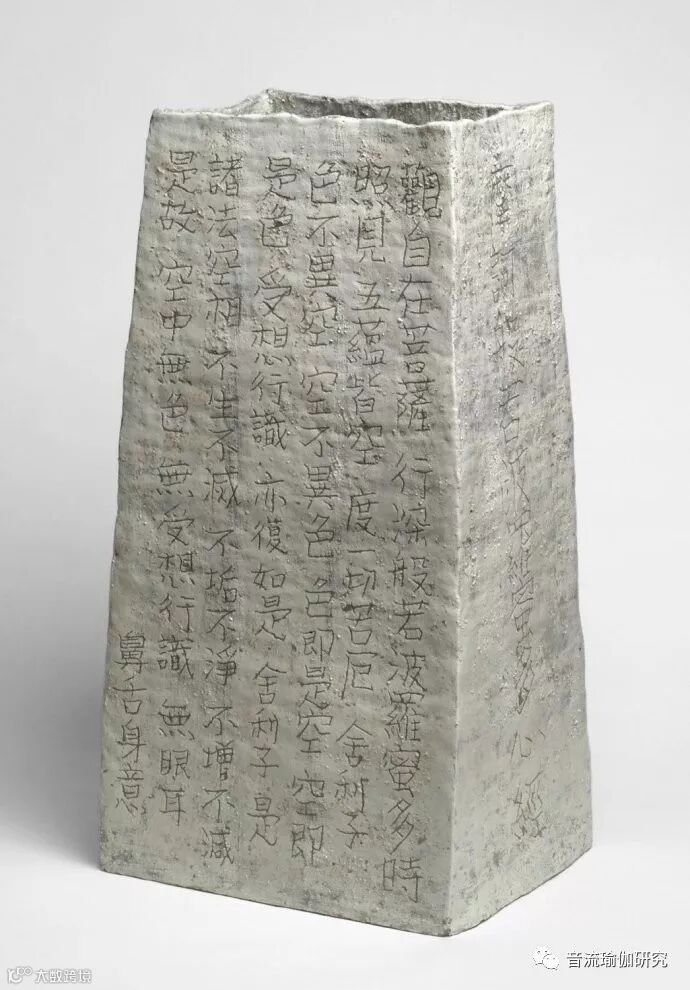 摩訶般若波羅蜜多心經
觀自在菩薩 行深般若波羅蜜多時
照見 五蘊皆空 度一切苦厄 舍利子
色不異空 空不異色 色即是空 空即
是色 受想行識 亦復如是 舍利子 是
諸法空相 不生不滅 不垢不淨 不增不減
是故 空中無色 無受想行識 無眼耳
鼻舌身意
大数跨境
音流瑜伽研究